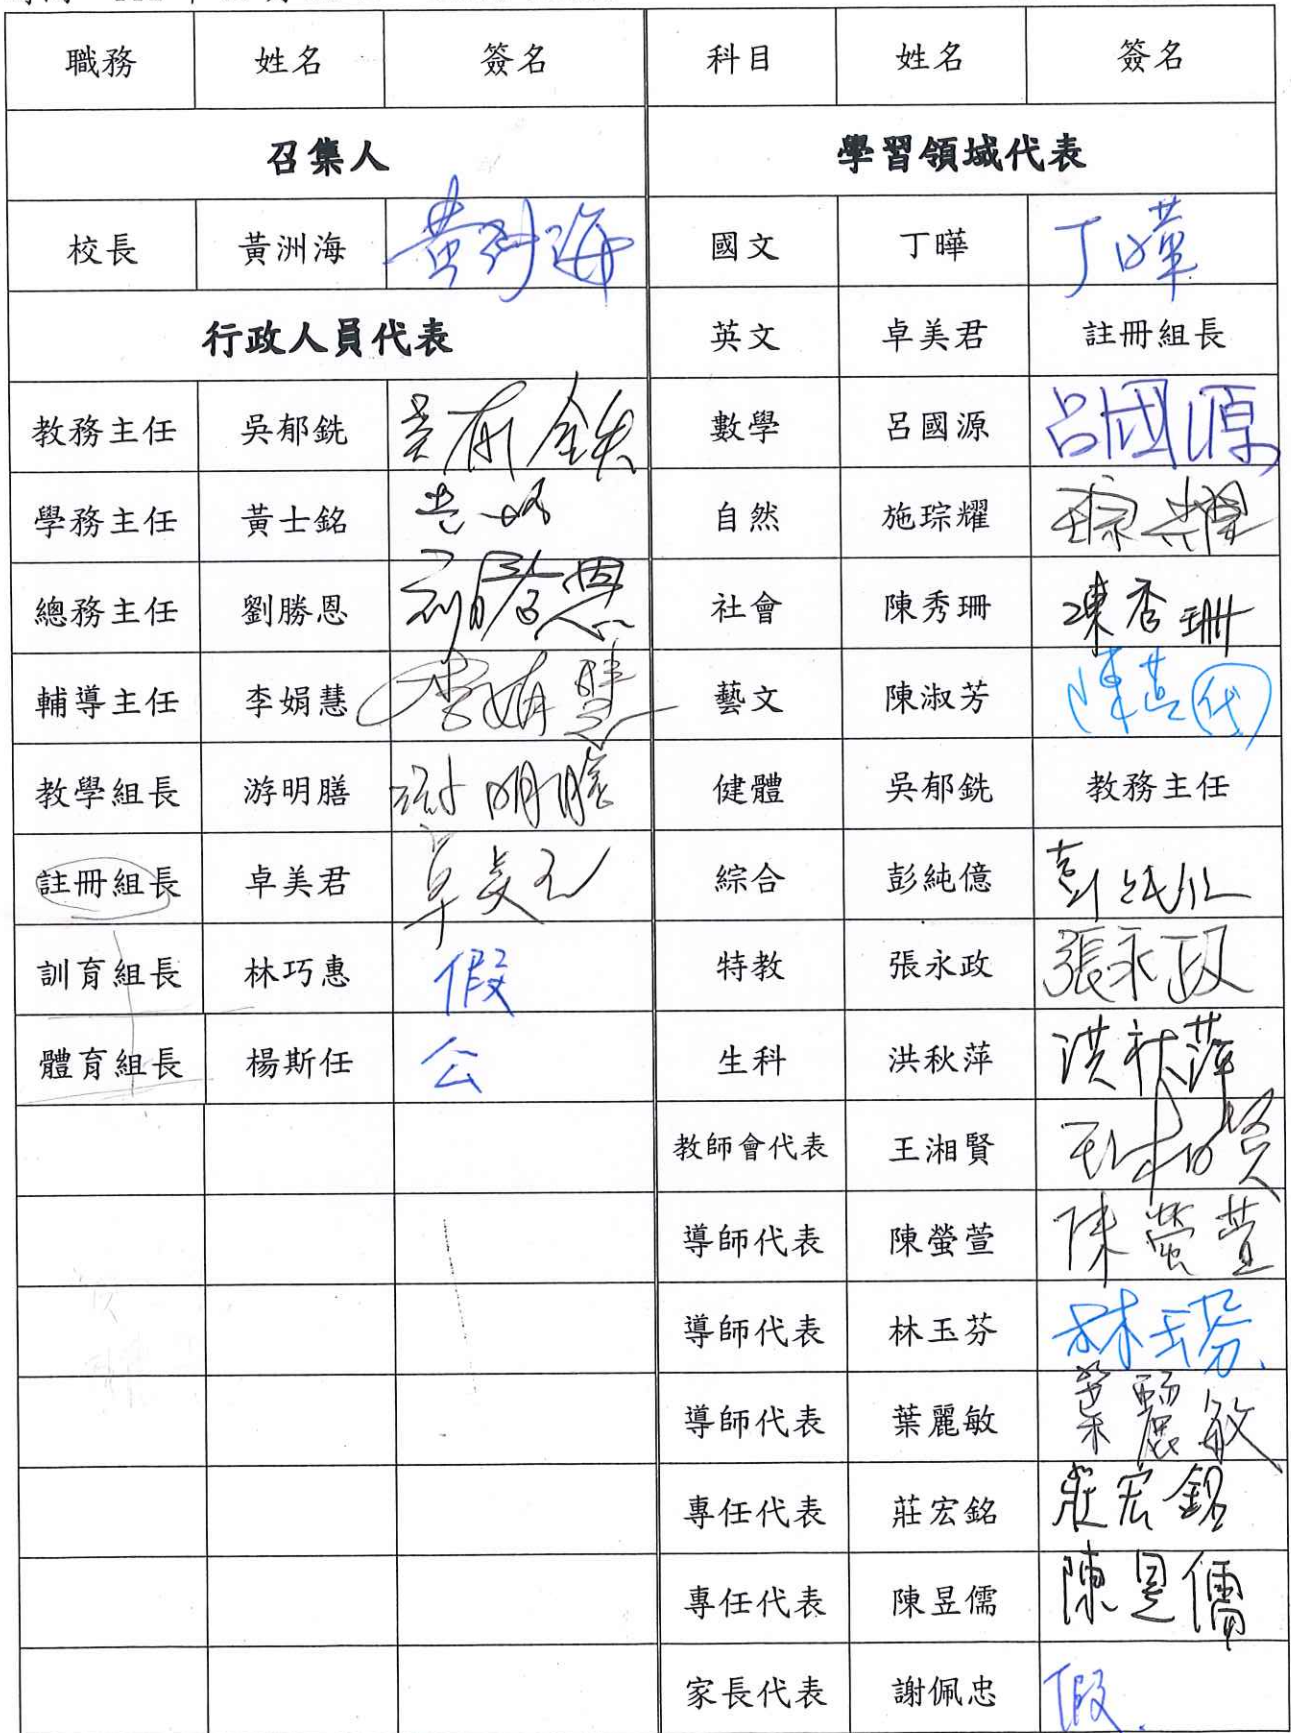 職務 姓名 簽名 科目 姓名 簽名
召集人 學習領域代表
校長 黃洲海 黃洲海 國文 丁曄 丁曄
行政人員代表 英文 卓美君 註冊組長
教務主任 吳郁銑 吳郁銑 數學 呂國源 呂國源
學務主任 黃士銘 自然 施琮耀 琮耀
總務主任 劉勝恩 劉勝恩 社會 陳秀珊 陳秀珊
輔導主任 李娟慧 李娟慧 藝文 陳淑芳 代
教學組長 游明膳 游明膳 健體 吳郁銑 教務主任
註冊組長 卓美君 卓美君 綜合 彭純億 彭純億
訓育組長 林巧惠 假 特教 張永政 張永政
體育組長 楊斯任 公 生科 洪秋萍 洪秋萍
教師會代表 王湘賢 王湘賢
導師代表 陳螢萱 陳螢萱
導師代表 林玉芬 林玉芬
導師代表 葉麗敏 葉麗敏
專任代表 莊宏銘 莊宏銘
專任代表 陳昱儒 陳昱儒
家長代表 謝佩忠 假